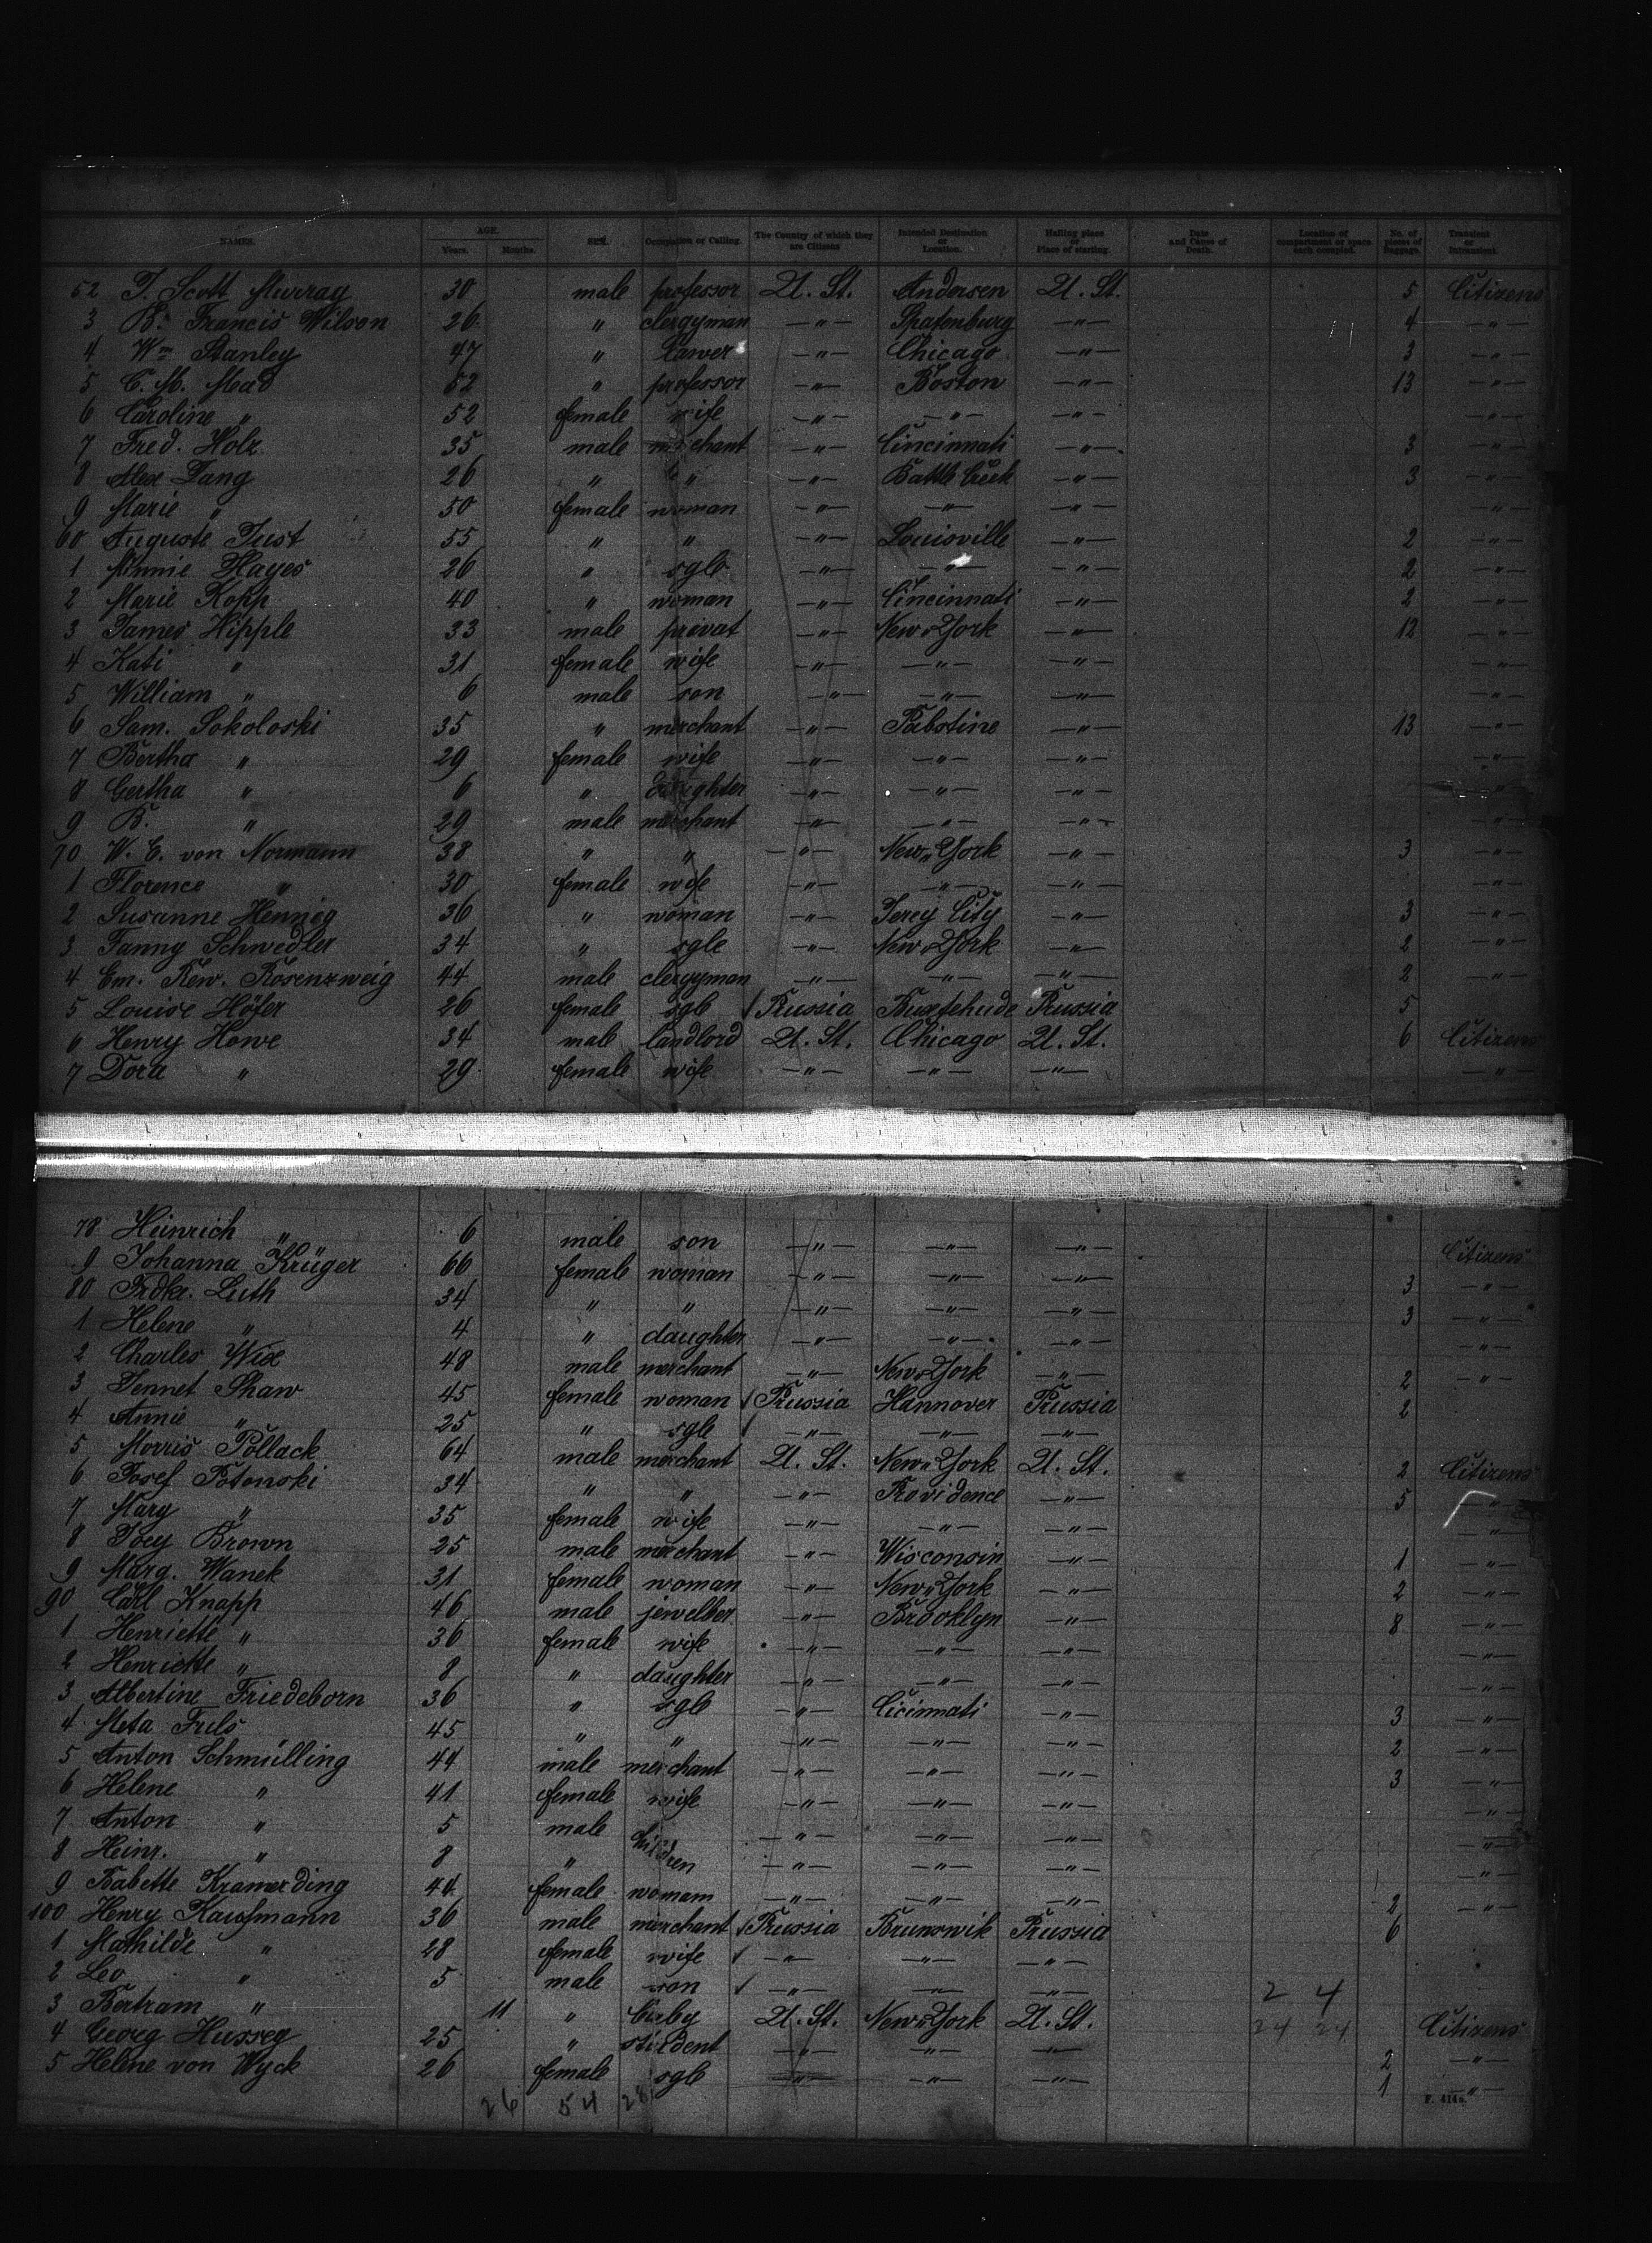 NAMES. AGE. Years. Months. SEX. Occupation or Calling. The Country of which they are Citizens Intended Destination or Location. Hailing place or Place of starting. Date and Cause of Death. Location of compartment or space each occupied. No. of pieces of Baggage. Transient or Intransient.
52 T. Scott Murray 30 male professor U. St. Andersen U. St. 5 Citizens
3 R. Francis Wilson 26 " clergyman —"— Spatenburg —"— 4 —"—
4 Wm Stanley 47 " Lawer —"— Chicago —"— 3 —"—
5 C. M. Mead 52 " professor —"— Boston —"— 13 —"—
6 Caroline " 52 female wife —"— —"— —"— —"—
7 Fred. Holz 35 male merchant —"— Cincinnati —"— 3 —"—
8 Alex Lang 26 " " —"— Battle Creek —"— 3 —"—
9 Marie " 50 female woman —"— —"— —"— —"—
60 Auguste Just 55 " " —"— Louisville —"— 2 —"—
1 Minnie Hayes 26 " sgle —"— —"— —"— 2 —"—
2 Marie Kopp 40 " woman —"— Cincinnati —"— 2 —"—
3 James Hipple 33 male privat —"— New-York —"— 12 —"—
4 Kati " 31 female wife —"— —"— —"— —"—
5 William " 6 male son —"— —"— —"— —"—
6 Sam. Sokoloski 35 " merchant —"— Pabstine —"— 13 —"—
7 Bertha " 29 female wife —"— —"— —"— —"—
8 Gertha " 6 " daughter —"— —"— —"— —"—
9 B. " 29 male merchant —"— —"— —"— —"—
70 W. C. von Normann 38 " " —"— New-York —"— 3 —"—
1 Florence " 30 female wife —"— —"— —"— —"—
2 Susanne Hennig 36 " woman —"— Jercy City —"— 3 —"—
3 Fanny Schwedler 34 " sgle —"— New-York —"— 2 —"—
4 Em. Rew. Rosenzweig 44 male clergyman —"— —"— —"— 2 —"—
5 Louise Höfer 26 female sgle Prussia Buxtehude Prussia 5
6 Henry Howe 34 male landlord U. St. Chicago U. St. 6 Citizens
7 Dora " 29 female wife —"— —"— —"— —"—
78 Heinrich " 6 male son —"— —"— —"— Citizens
9 Johanna Krüger 66 female woman —"— —"— —"— 3 —"—
80 Frdke. Luth 34 " " —"— —"— —"— 3 —"—
1 Helene " 4 " daughter —"— —"— —"— —"—
2 Charles Wix 48 male merchant —"— New-York —"— 2 —"—
3 Jennet Shaw 45 female woman Prussia Hannover Prussia 2
4 Annie " 25 " sgle —"— —"— —"—
5 Morris Pollack 64 male merchant U. St. New-York U. St. 2 Citizens
6 Josef Potonski 34 " " —"— Providence —"— 5 —"—
7 Mary " 35 female wife —"— —"— —"— —"—
8 Joey Brown 25 male merchant —"— Wisconsin —"— 1 —"—
9 Marg. Wanek 31 female woman —"— New-York —"— 2 —"—
90 Carl Knapp 46 male jeweller —"— Brooklyn —"— 8 —"—
1 Henriette " 36 female wife —"— —"— —"— —"—
2 Henriette " 8 " daughter —"— —"— —"— —"—
3 Albertine Friedeborn 36 " sgle —"— Cicinnati —"— 3 —"—
4 Meta Fuls 45 " " —"— —"— —"— 2 —"—
5 Anton Schmülling 44 male merchant —"— —"— —"— 3 —"—
6 Helene " 41 female wife —"— —"— —"— —"—
7 Anton " 5 male children —"— —"— —"— —"—
8 Heinr. " 8 " —"— —"— —"— —"—
9 Babette Kramerding 44 female womam —"— —"— —"— 2 —"—
100 Henry Kaufmann 36 male merchant Prussia Brunswik Prussia 6
1 Mathilde " 28 female wife —"— —"— —"—
2 Leo " 5 male son —"— —"— —"— 2 4
3 Bertram " 11 " U. St. New-York U. St. 24 24 Citizens
4 Georg Hussey 25 " student —"— —"— —"— 2 —"—
5 Helene von Wyck 26 female sgle —"— —"— —"— 1 —"—
26 54 28
F. 414a.